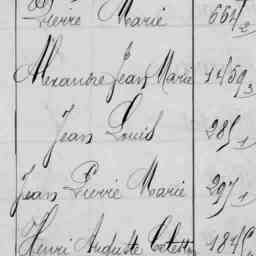 Pierre Marie 664/2
Alexandre Jean Marie 1459/3
Jean Louis 285/1
Jean Pierre Marie 297/1
Henri Auguste Célestin